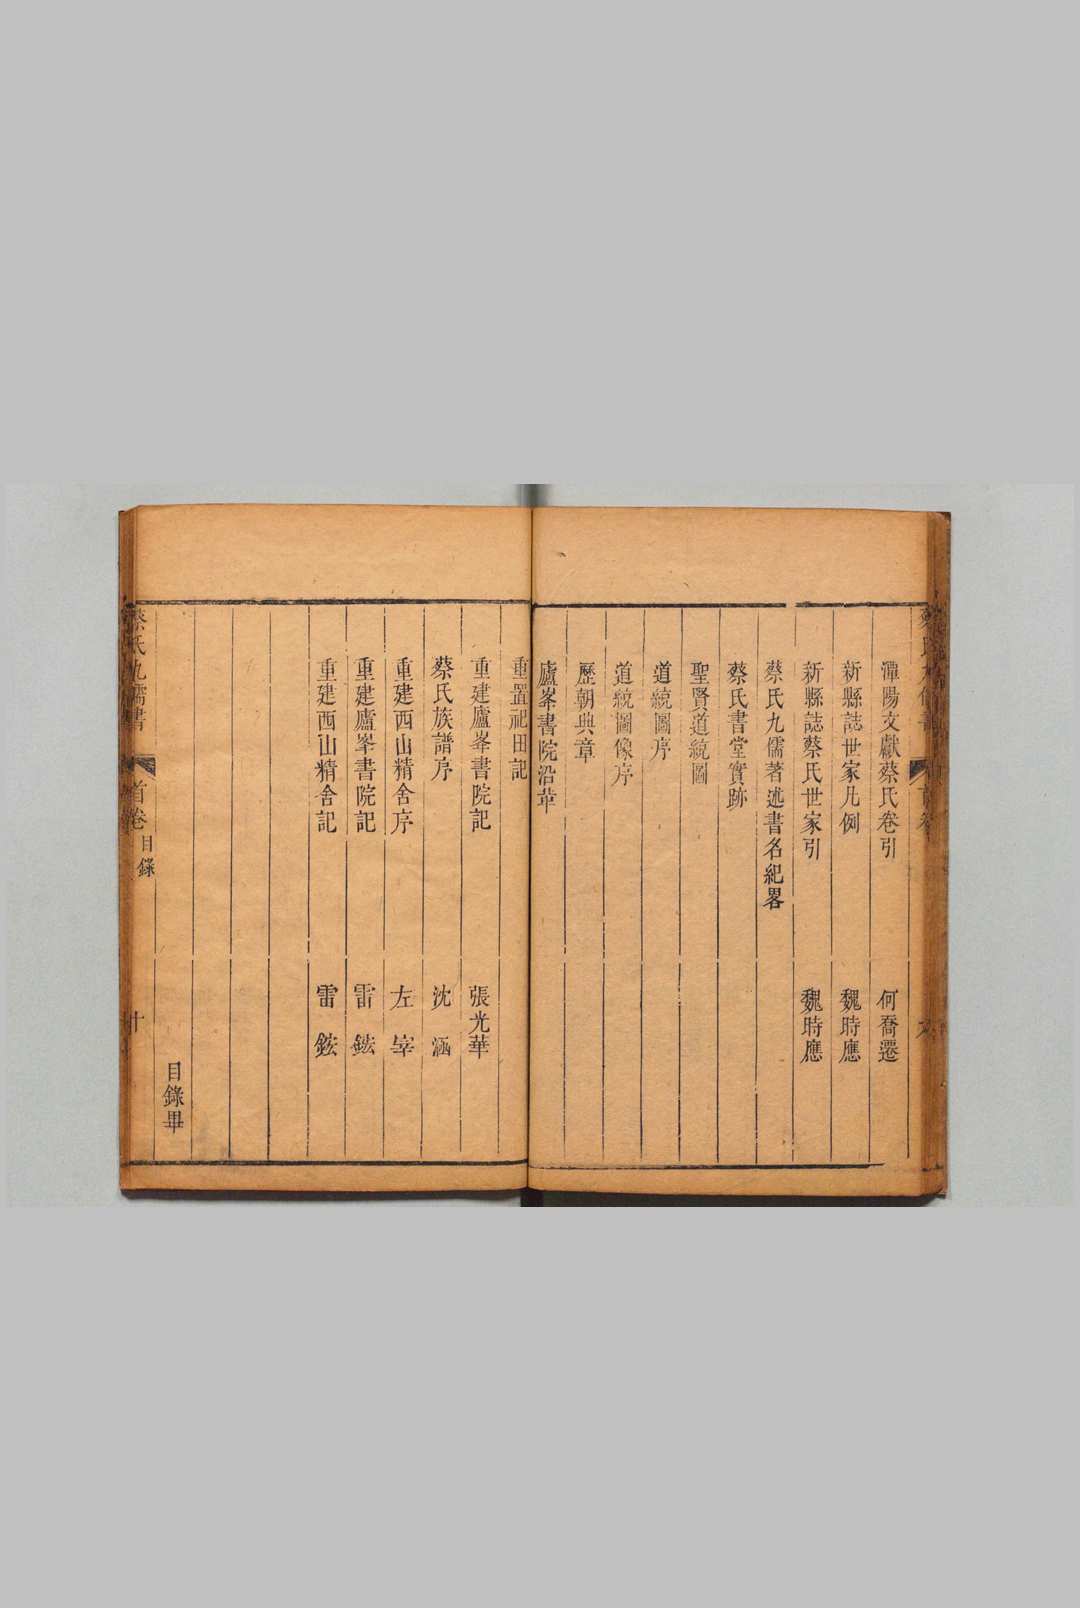 潭陽文獻蔡氏卷引　何喬遷
新縣誌世家凡例　魏時應
新縣誌蔡氏世家引　魏時應
蔡氏九儒著述書名紀畧
蔡氏書堂實跡
聖賢道統圖
道統圖序
道統圖像序
歷朝典章
廬峯書院沿革
重置祀田記
重建廬峯書院記　張光華
蔡氏族譜序　沈涵
重建西山精舍序　左宰
重建廬峯書院記　雷鋐
重建西山精舍記　雷鋐
目錄畢
蔡氏九儒書　首卷　目錄　十